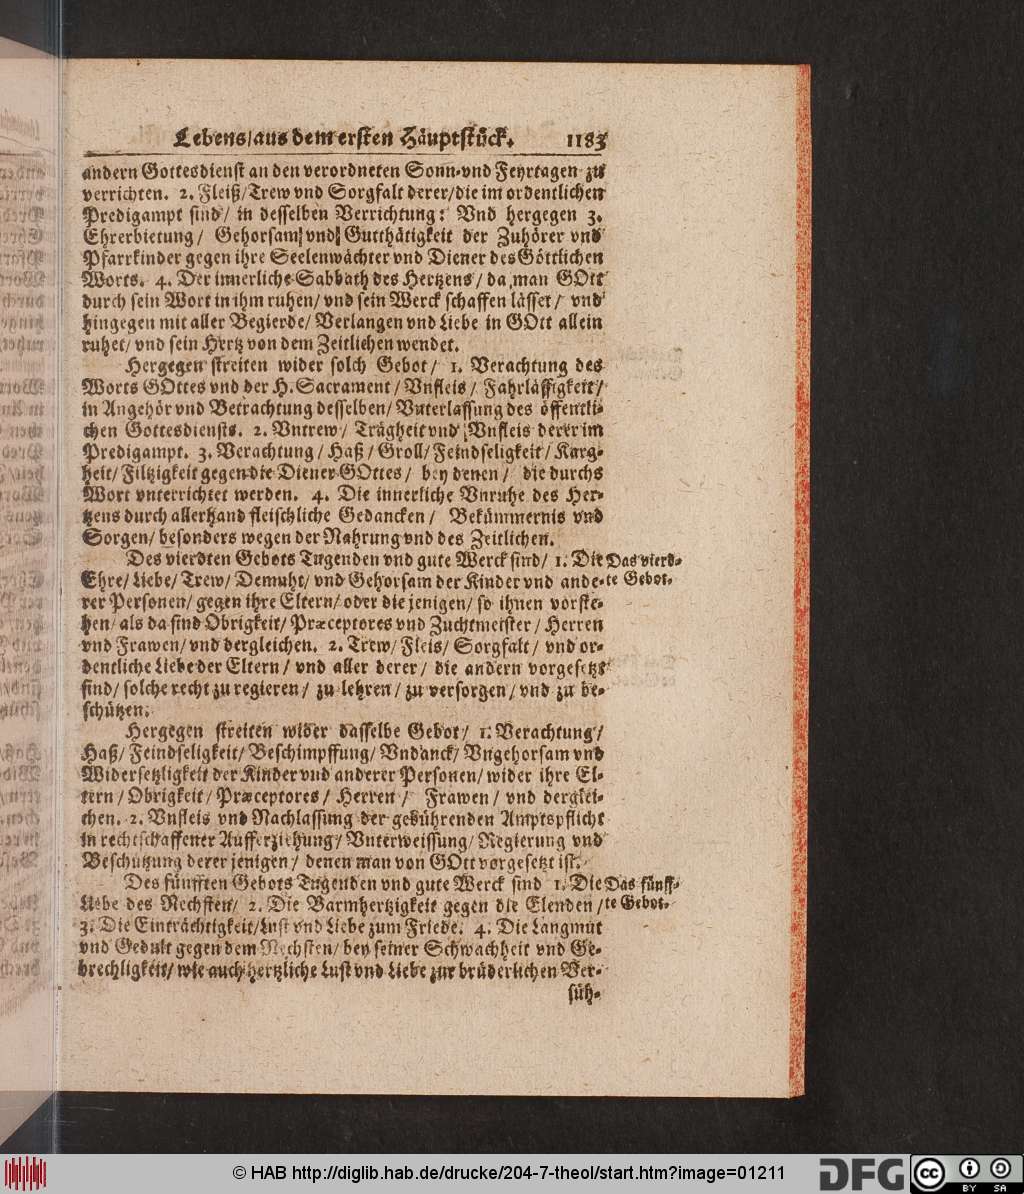 Lebens/ aus dem ersten Häuptstück. 1183
andern Gottesdienst an den verordneten Sonn-vnd Feyrtagen zu
verrichten. 2. Fleiß/ Trew vnd Sorgfalt derer/ die im ordentlichen
Predigampt sind/ in desselben Verrichtung: Vnd hergegen 3.
Ehrerbietung/ Gehorsam vnd Gutthätigkeit der Zuhörer vnd
Pfarrkinder gegen ihre Seelenwächter vnd Diener des Göttlichen
Worts. 4. Der innerliche Sabbath des Hertzens/ da man GOtt
durch sein Wort in ihm ruhen/ vnd sein Werck schaffen lässet/ vnd
hingegen mit aller Begierde/ Verlangen vnd Liebe in GOtt allein
ruhet/ vnd sein Hertz von dem Zeitlichen wendet.
Hergegen streiten wider solch Gebot/ 1. Verachtung des
Worts GOttes vnd der H. Sacrament/ Vnfleis/ Fahrlässigkeit/
in Angehör vnd Betrachtung desselben/ Vnterlassung des öffentli-
chen Gottesdiensts. 2. Vntrew/ Trägheit vnd Vnfleis derer im
Predigampt. 3. Verachtung/ Haß/ Groll/ Feindseligkeit/ Karg-
heit/ Filtzigkeit gegen die Diener GOttes/ bey denen/ die durchs
Wort vnterrichtet werden. 4. Die innerliche Vnruhe des Her-
tzens durch allerhand fleischliche Gedancken/ Bekümmernis vnd
Sorgen/ besonders wegen der Nahrung vnd des Zeitlichen.
Des vierdten Gebots Tugenden vnd gute Werck sind/ 1. Die
Das vierd-
te Gebot.
Ehre/ Liebe/ Trew/ Demuht/ vnd Gehorsam der Kinder vnd ande-
rer Personen/ gegen ihre Eltern/ oder die jenigen/ so ihnen vorste-
hen/ als da sind Obrigkeit/ Præceptores vnd Zuchtmeister/ Herren
vnd Frawen/ vnd dergleichen. 2. Trew/ Fleis/ Sorgfalt/ vnd or-
dentliche Liebe der Eltern/ vnd aller derer/ die andern vorgesetzt
sind/ solche recht zu regieren/ zu lehren/ zu versorgen/ vnd zu be-
schützen.
Hergegen streiten wider dasselbe Gebot/ 1. Verachtung/
Haß/ Feindseligkeit/ Beschimpffung/ Vndanck/ Vngehorsam vnd
Widersetzligkeit der Kinder vnd anderer Personen/ wider ihre El-
tern/ Obrigkeit/ Præceptores/ Herren/ Frawen/ vnd derglei-
chen. 2. Vnfleis vnd Nachlassung der gebührenden Amptspflicht
in rechtschaffener Aufferziehung/ Vnterweissung/ Regierung vnd
Beschützung derer jenigen/ denen man von GOtt vorgesetzt ist.
Des fünfften Gebots Tugenden vnd gute Werck sind 1. Die
Das fünff-
te Gebot.
Liebe des Nechsten/ 2. Die Barmhertzigkeit gegen die Elenden/
3. Die Einträchtigkeit/ Lust vnd Liebe zum Friede. 4. Die Langmut
vnd Gedult gegen dem Nechsten/ bey seiner Schwachheit vnd Ge-
brechligkeit/ wie auch hertzliche Lust vnd Liebe zur brüderlichen Ver-
süh-
© HAB http://diglib.hab.de/drucke/204-7-theol/start.htm?image=01211
DFG
cc BY SA